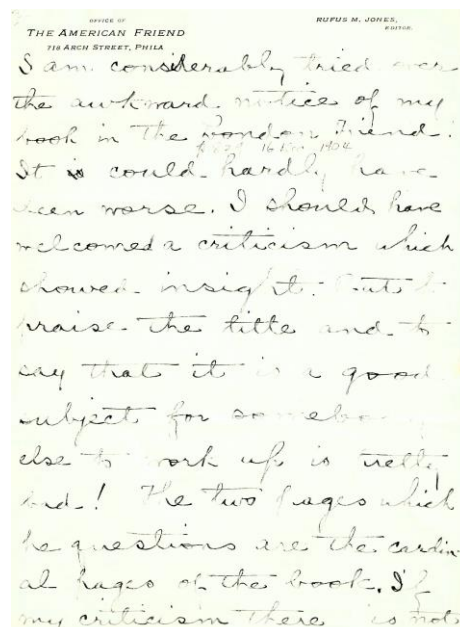 OFFICE OF
THE AMERICAN FRIEND
718 ARCH STREET, PHILA
RUFUS M. JONES,
EDITOR.
I am considerably tried over
the awkward notice of my
book in the London Friend.
16 1904
It is could hardly have
been worse. I should have
welcomed a criticism which
showed insight. But to
praise the title and to
say that it is a good
subject for somebody
else to work up is pretty
bad! The two pages which
he questions are the cardin-
al pages of the book. If
my criticism there is not